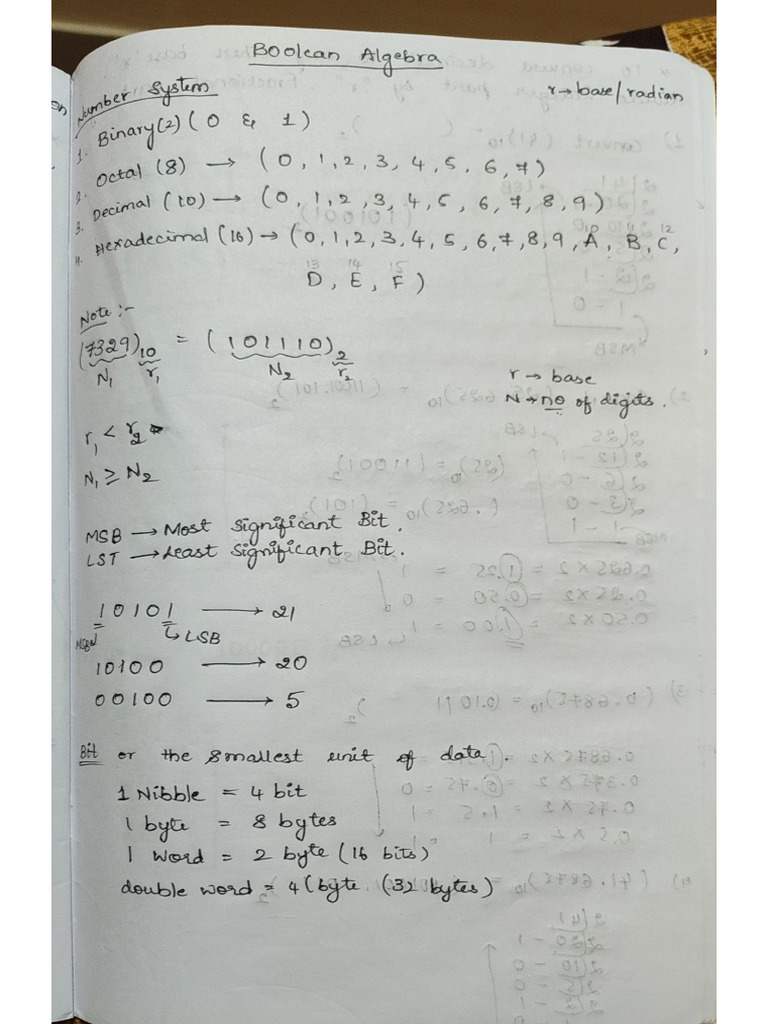 Boolean Algebra
Number System
r → base/radian
1. Binary(2) (0 & 1)
2. Octal (8) → (0, 1, 2, 3, 4, 5, 6, 7)
3. Decimal (10) → (0, 1, 2, 3, 4, 5, 6, 7, 8, 9)
4. Hexadecimal (16) → (0, 1, 2, 3, 4, 5, 6, 7, 8, 9, A, B, C,
10 11 12
13 14 15
D, E, F)
Note :-
(7329)10 = (101110)2
N1 r1 N2 r2
r → base
N → no of digits.
r1 < r2
N1 ≥ N2
MSB → Most Significant Bit.
LST → Least Significant Bit.
10101 → 21
MSB LSB
10100 → 20
00100 → 5
Bit or the smallest unit of data.
1 Nibble = 4 bit
1 byte = 8 bytes
1 word = 2 byte (16 bits)
double word = 4(byte (32 bytes)